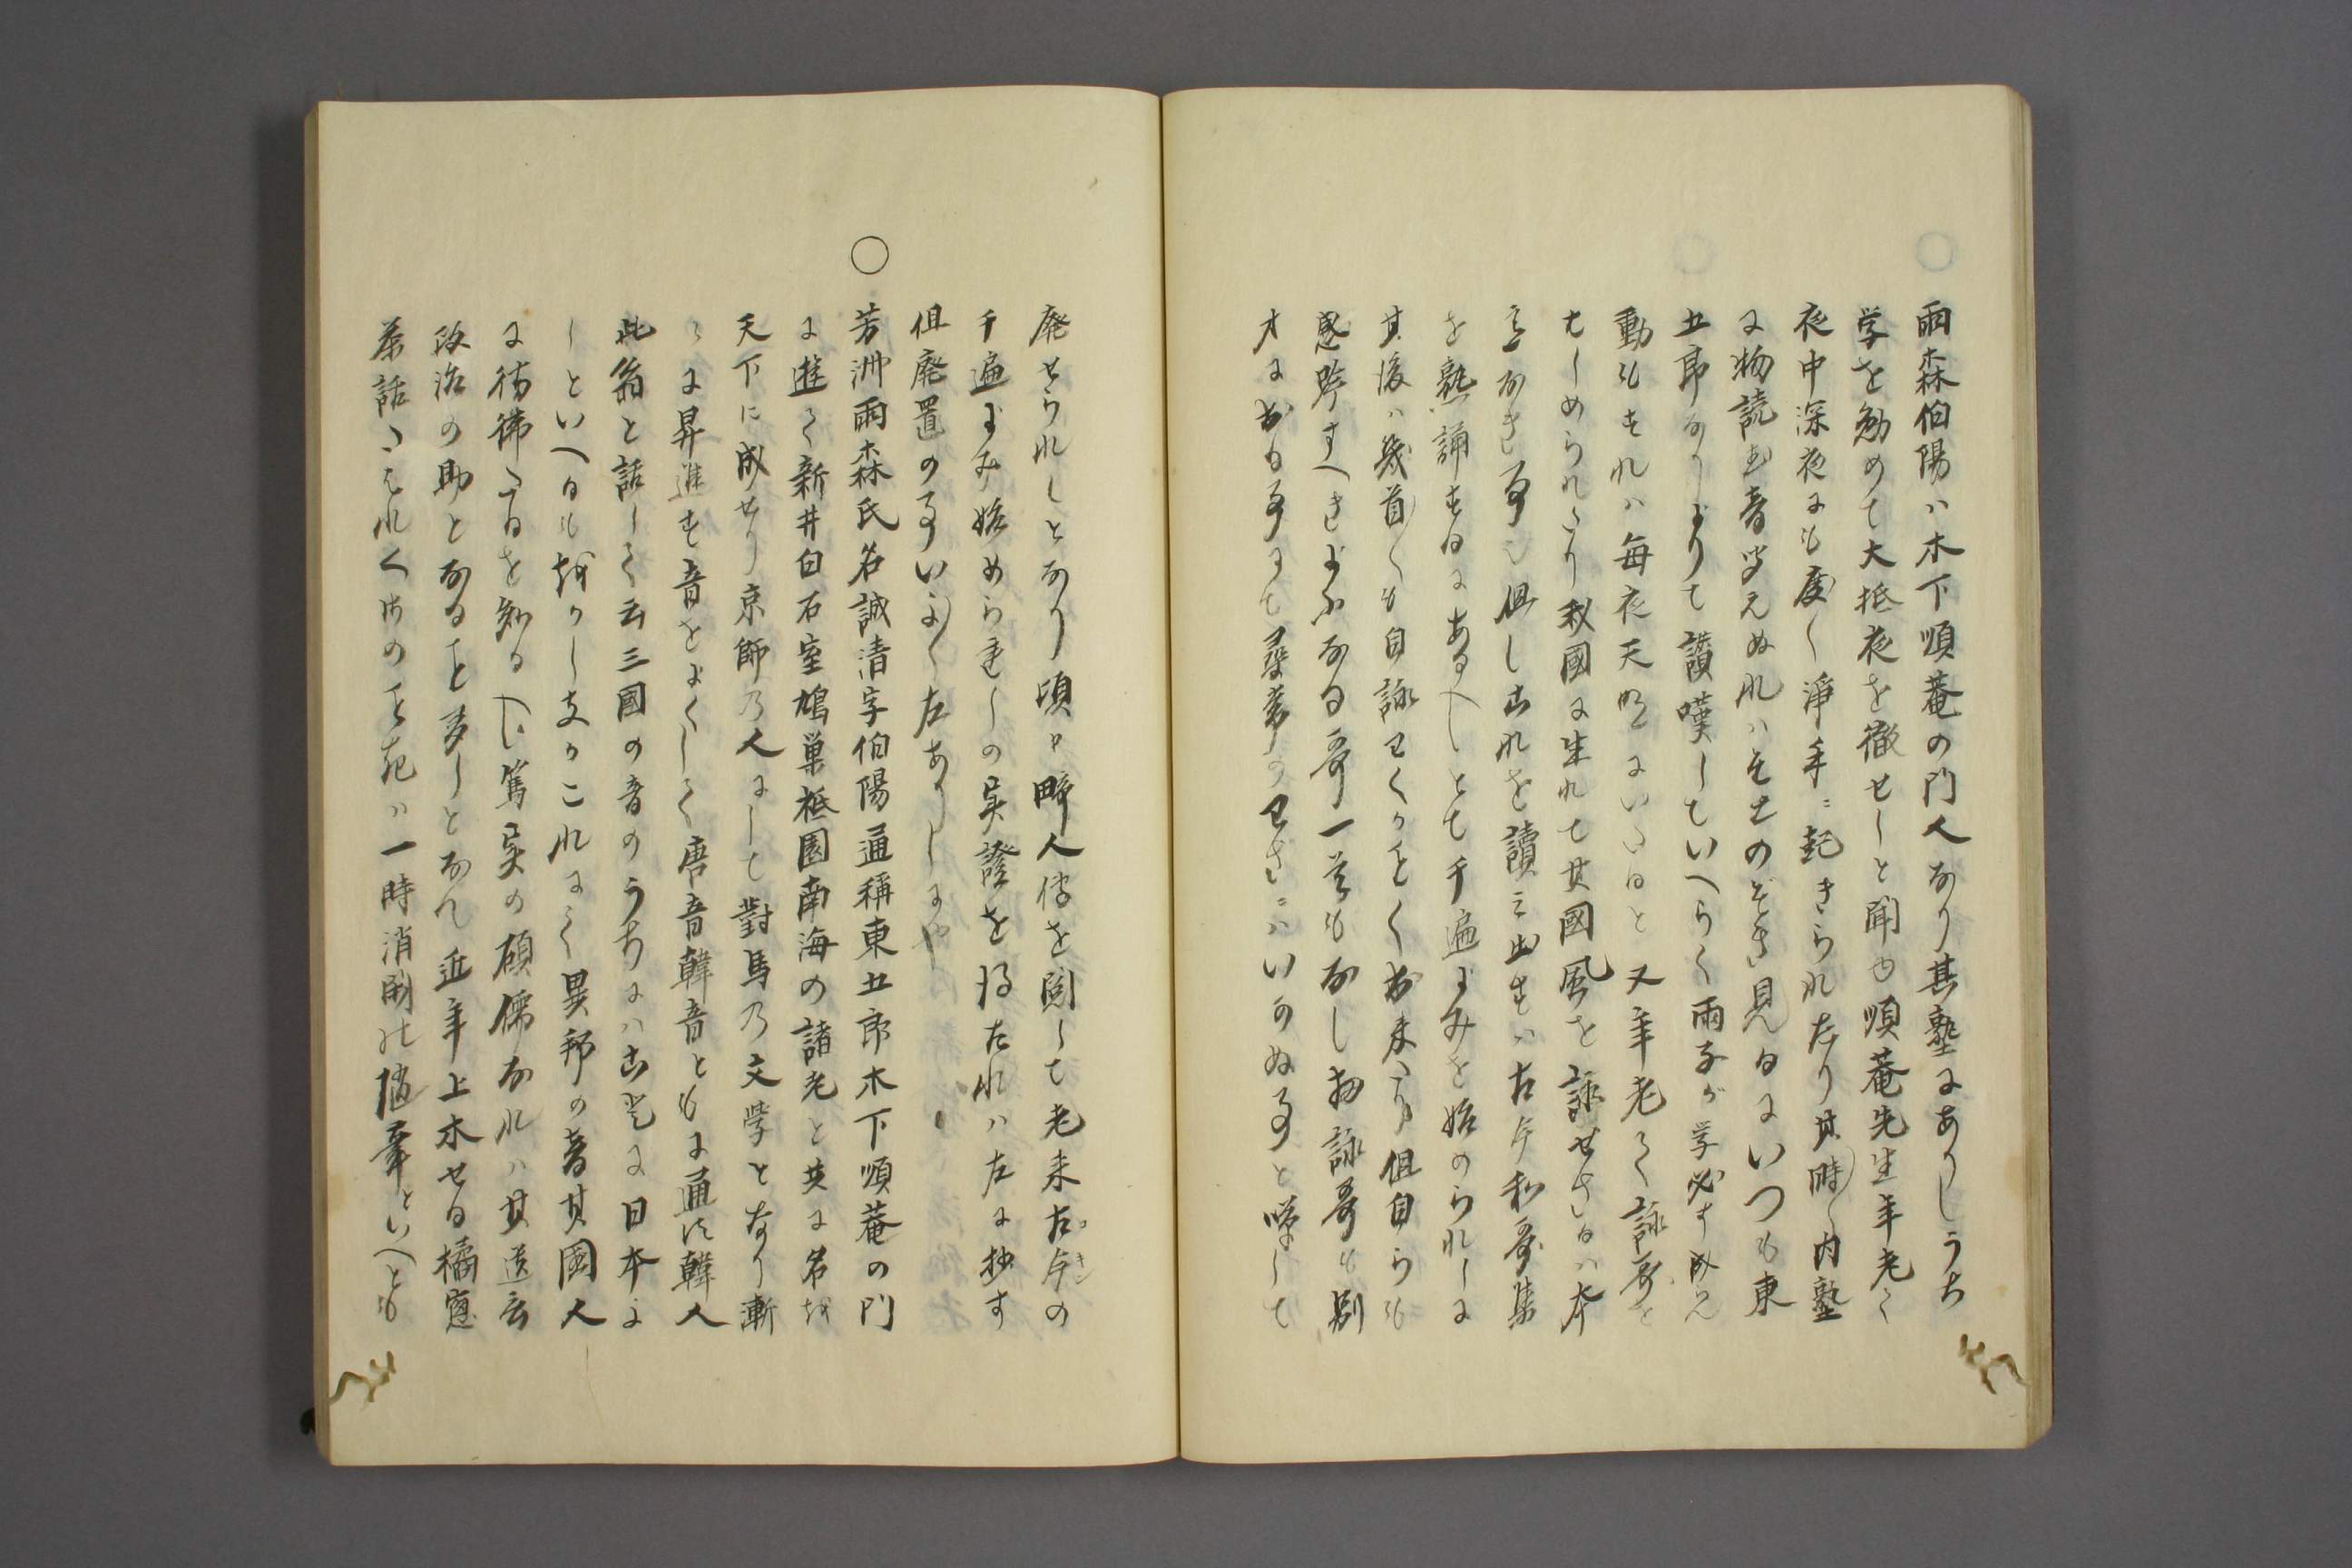 雨森伯陽ハ木下順菴の門人なり其塾にありしうち
学を勉めて大抵夜を徹せしと聞ゆ順菴先生年老て
夜中深夜にも度〱浄手ニ起きられたり其時〱内塾
に物読む音聞えぬれハそとのぞき見るにいつも東
五郎なりよりて讃嘆していへらく雨子が学必す成ん
動もすれハ毎夜天明にいたると又年老て詠哥を
たしめられたり我國に生れて其國風を詠せさるハ本
意なき事也但しこれを讀ミ出すハ古今和哥集
を熟誦するにあるへしとて千遍よみを始められしに
其後ハ幾首〱も自詠わくかことく出来たり但自らも
感吟すへきよふなる哥一首もなし扨詠哥も別
才に出る事にて尋常のわさニハいかぬ事と嘆して
廃せられしとなり頃日畸人伝を閲して老来古今の
千遍よみ始められしの実證を得たれハ左に抄す
但廃置の事いよ〱左ありしにや
○芳洲雨森氏名誠清字伯陽通稱東五郎木下順菴の門
に遊て新井白石室鳩巣祗園南海の諸老と共に名を
天下に成せり京師乃人にして對馬乃文学となり漸
〻に昇進す音をよくして唐音韓音ともに通す韓人
此翁と話して云三國の音のうちにハこと更に日本よ
しといへるも我か〱しきかこれにて異邦の音其國人
に彷彿たるを知るへし篤実の碩儒なれハ其遺言
政治の助となること多しとなん近年上木せる橘窓
茶話たはれくさのこときハ一時消閑の随筆といへとも